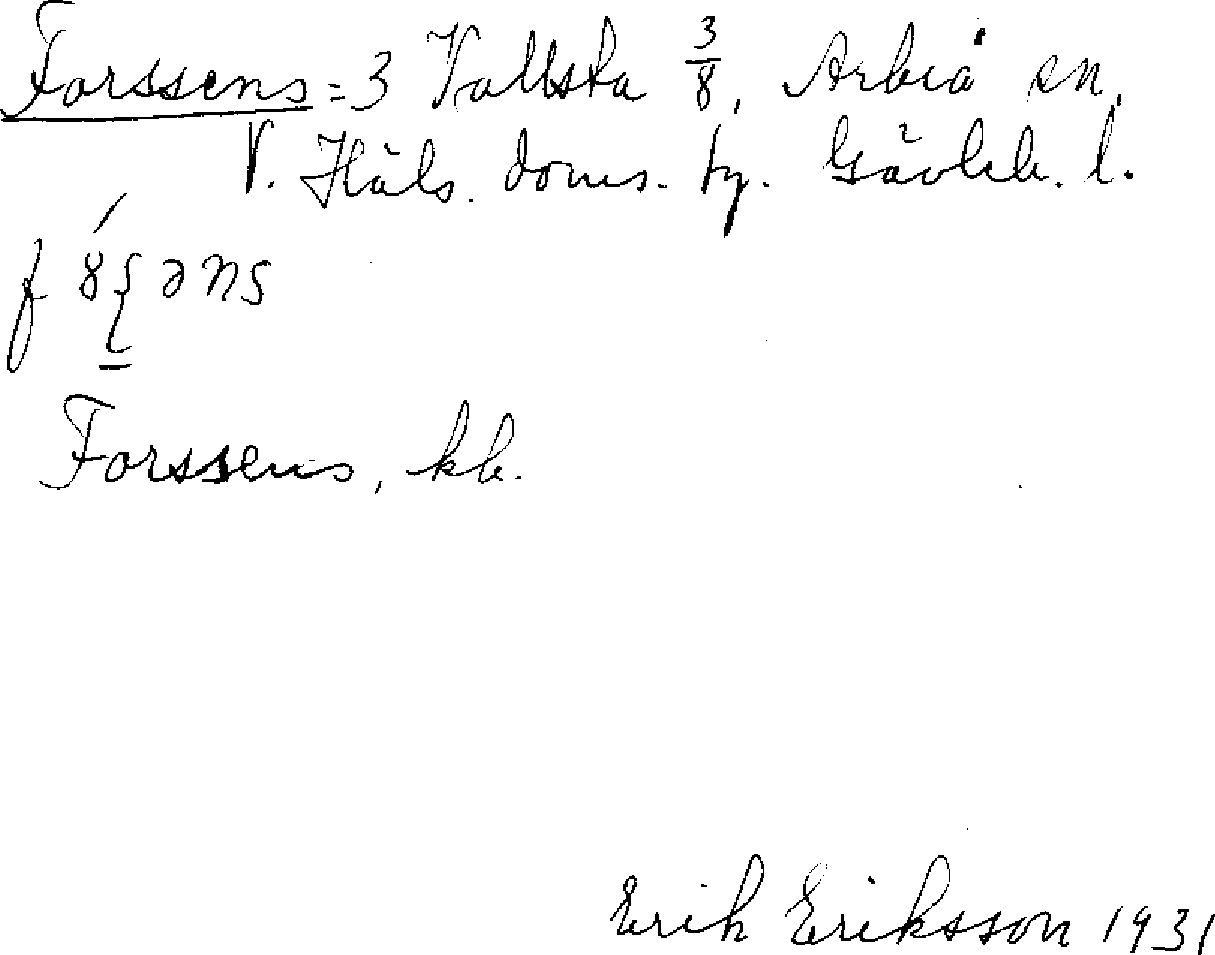 Forssens = 3 Vallsta 3/8, Arbrå sn,
V. Häls. doms. tg. Gävleb. l.
Forssens, kb.
Erik Eriksson 1931